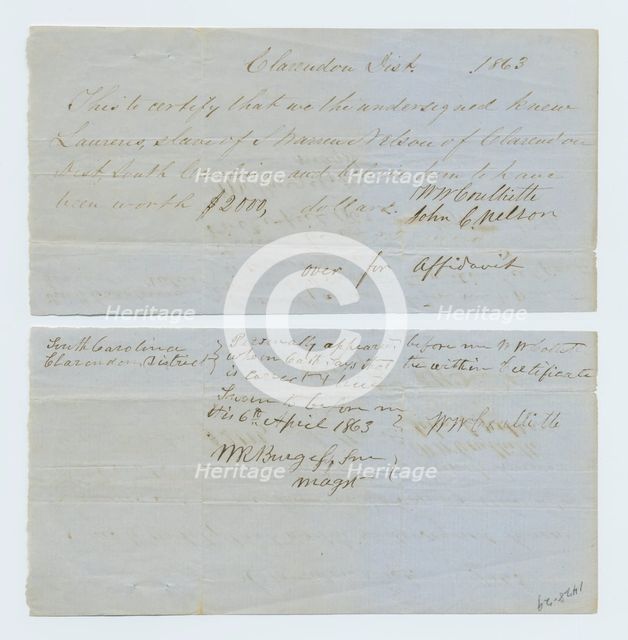 Clarendon Dist. 1863
This is to certify that we the undersigned knew
Laurens, slave of S Warren Nelson of Clarendon
Dist, South Carolina and believe him to have
been worth $2000, dollars.
WW Coulliette
John C. Nelson
over for Affidavit
South Carolina
Clarendon District
Personally appears before me WW
who on oath says that the within Certificate
is correct & true
Sworn to before me
this 6th April 1863
WW Coulliette
WR Burgess, Snr
magst
1428-24
Heritage
Heritage
Heritage
Heritage
Heritage
Heritage
Heritage
Heritage
C